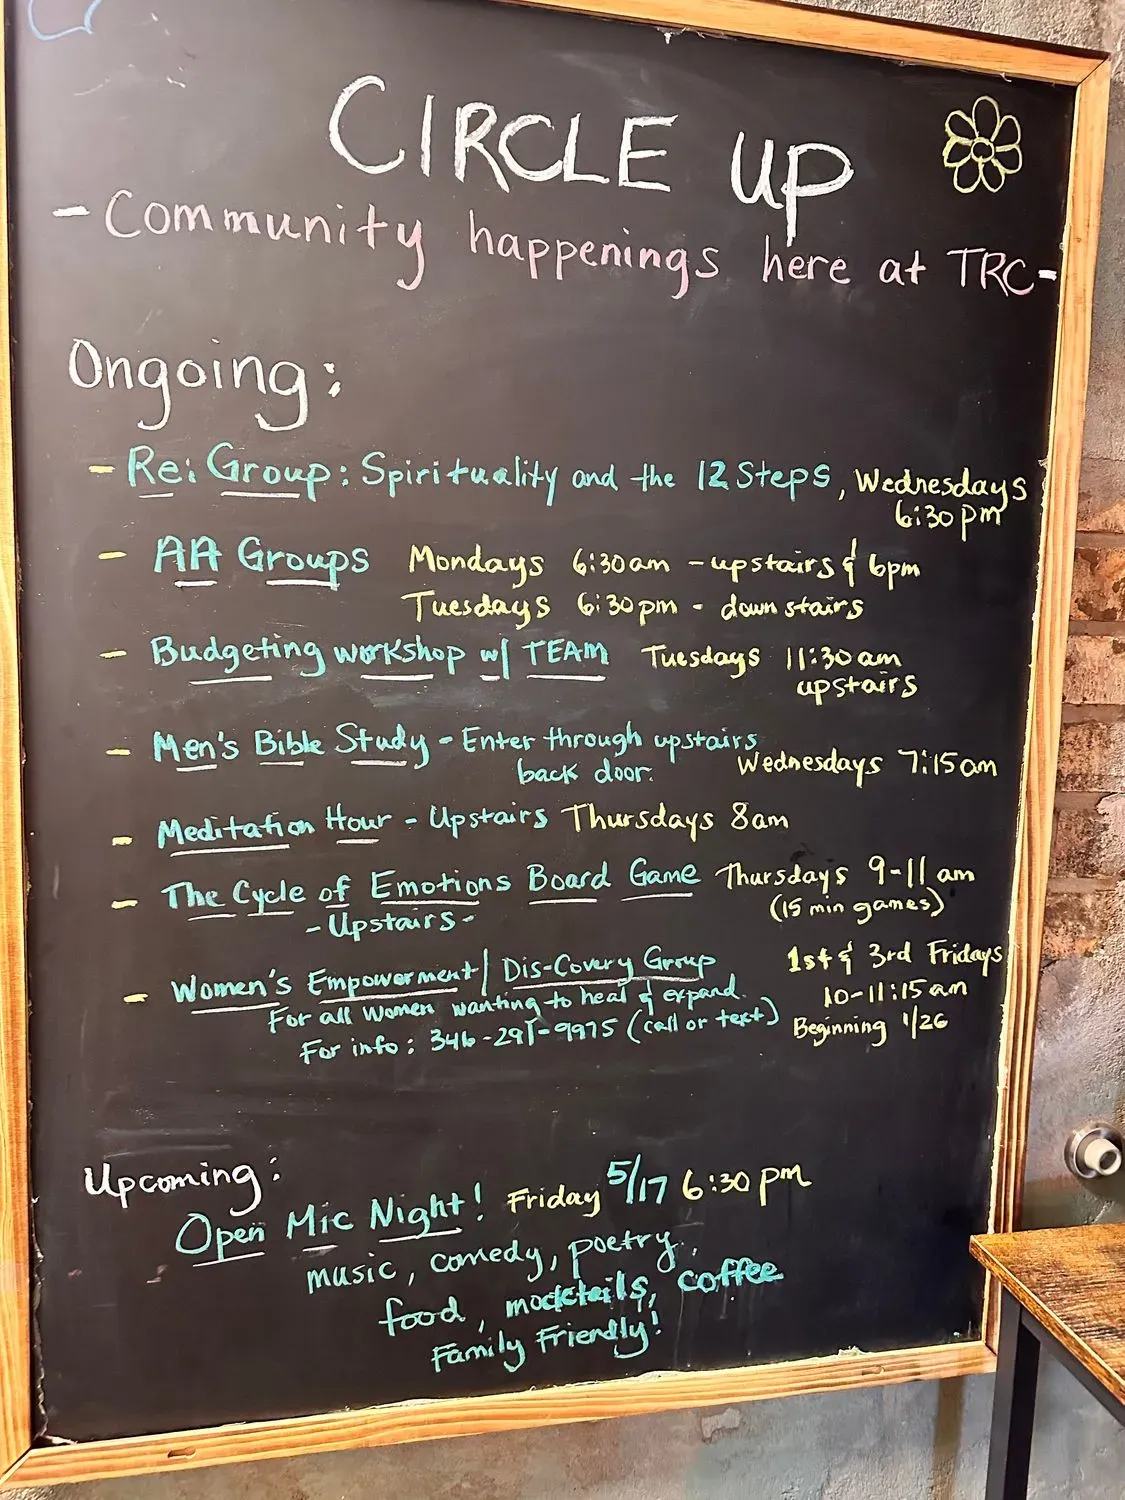 CIRCLE UP
- Community happenings here at TRC -
Ongoing:
- Re: Group: Spirituality and the 12 Steps, Wednesdays
6:30pm
- AA Groups Mondays 6:30am - upstairs & 6pm
Tuesdays 6:30pm - downstairs
- Budgeting workshop w/ TEAM Tuesdays 11:30am
upstairs
- Men's Bible Study - Enter through upstairs
back door. Wednesdays 7:15am
- Meditation Hour - Upstairs Thursdays 8am
- The Cycle of Emotions Board Game Thursdays 9-11am
- Upstairs - (15 min games)
- Women's Empowerment / Dis-Covery Group 1st & 3rd Fridays
For all women wanting to heal & expand. 10-11:15am
For info: 346-291-9975 (call or text) Beginning 1/26
Upcoming:
Open Mic Night! Friday 5/17 6:30pm
music, comedy, poetry,
food, mocktails, coffee
Family Friendly!